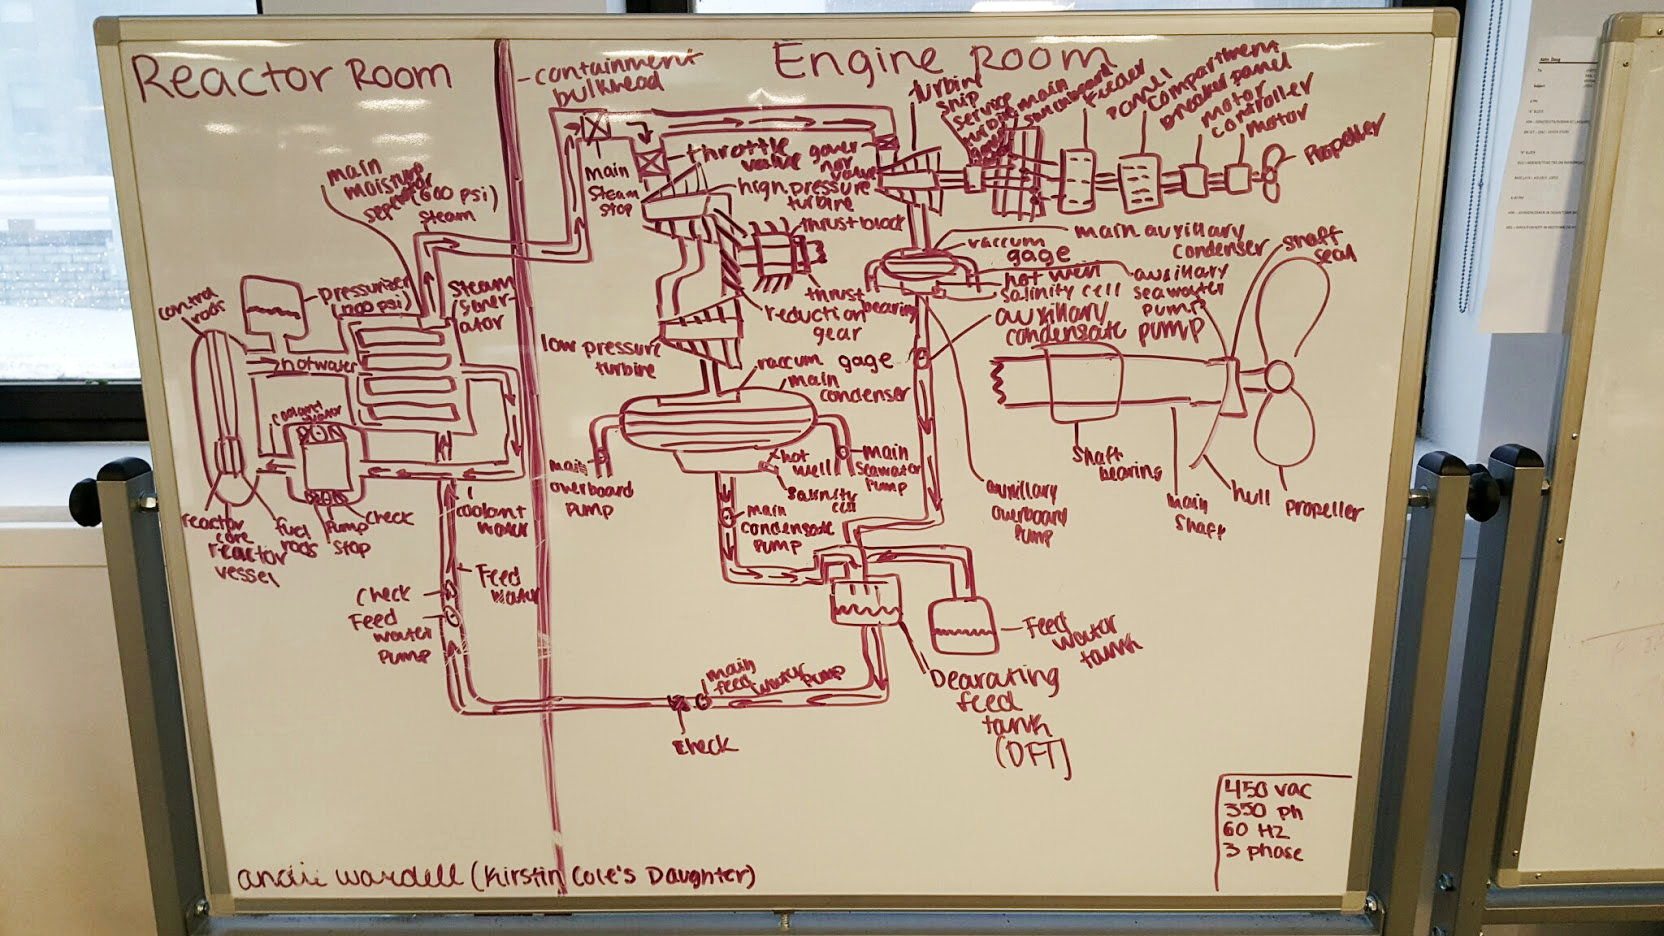 Reactor Room
Engine Room
containment
bulkhead
main
moisture
seperator (600 psi)
steam
pressurizer
control
rods
steam
gener-
ator
hot water
coolant
water
reactor
core
reactor
vessel
fuel
rods
pump
stop
check
coolant
water
Feed
water
check
Feed
water
pump
main
steam
stop
throttle
valve
high pressure
turbine
thrust block
thrust
bearing
reduction
gear
low pressure
turbine
vaccum gage
main
condenser
hot
well
salinity
cell
main
seawater
pump
main
overboard
pump
main
condensate
pump
gover
nor
valve
turbin
ship
service
turbine
main
switchboard
Feeder
panel
compartment
breaker panel
motor
controller
motor
Propeller
main auxillary
condenser
vaccum
gage
hot well
salinity cell
auxillary
seawater
pump
auxillary
condensate pump
auxillary
overboard
pump
shaft
seal
shaft
bearing
main
shaft
hull
propeller
Feed
water
tank
Dearating
feed
tank
(DFT)
main
feed
water pump
check
450 vac
350 ph
60 Hz
3 phase
andie wardell (Kirstin Cole's Daughter)